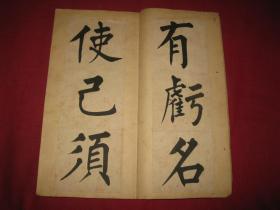 有虧名
使己須